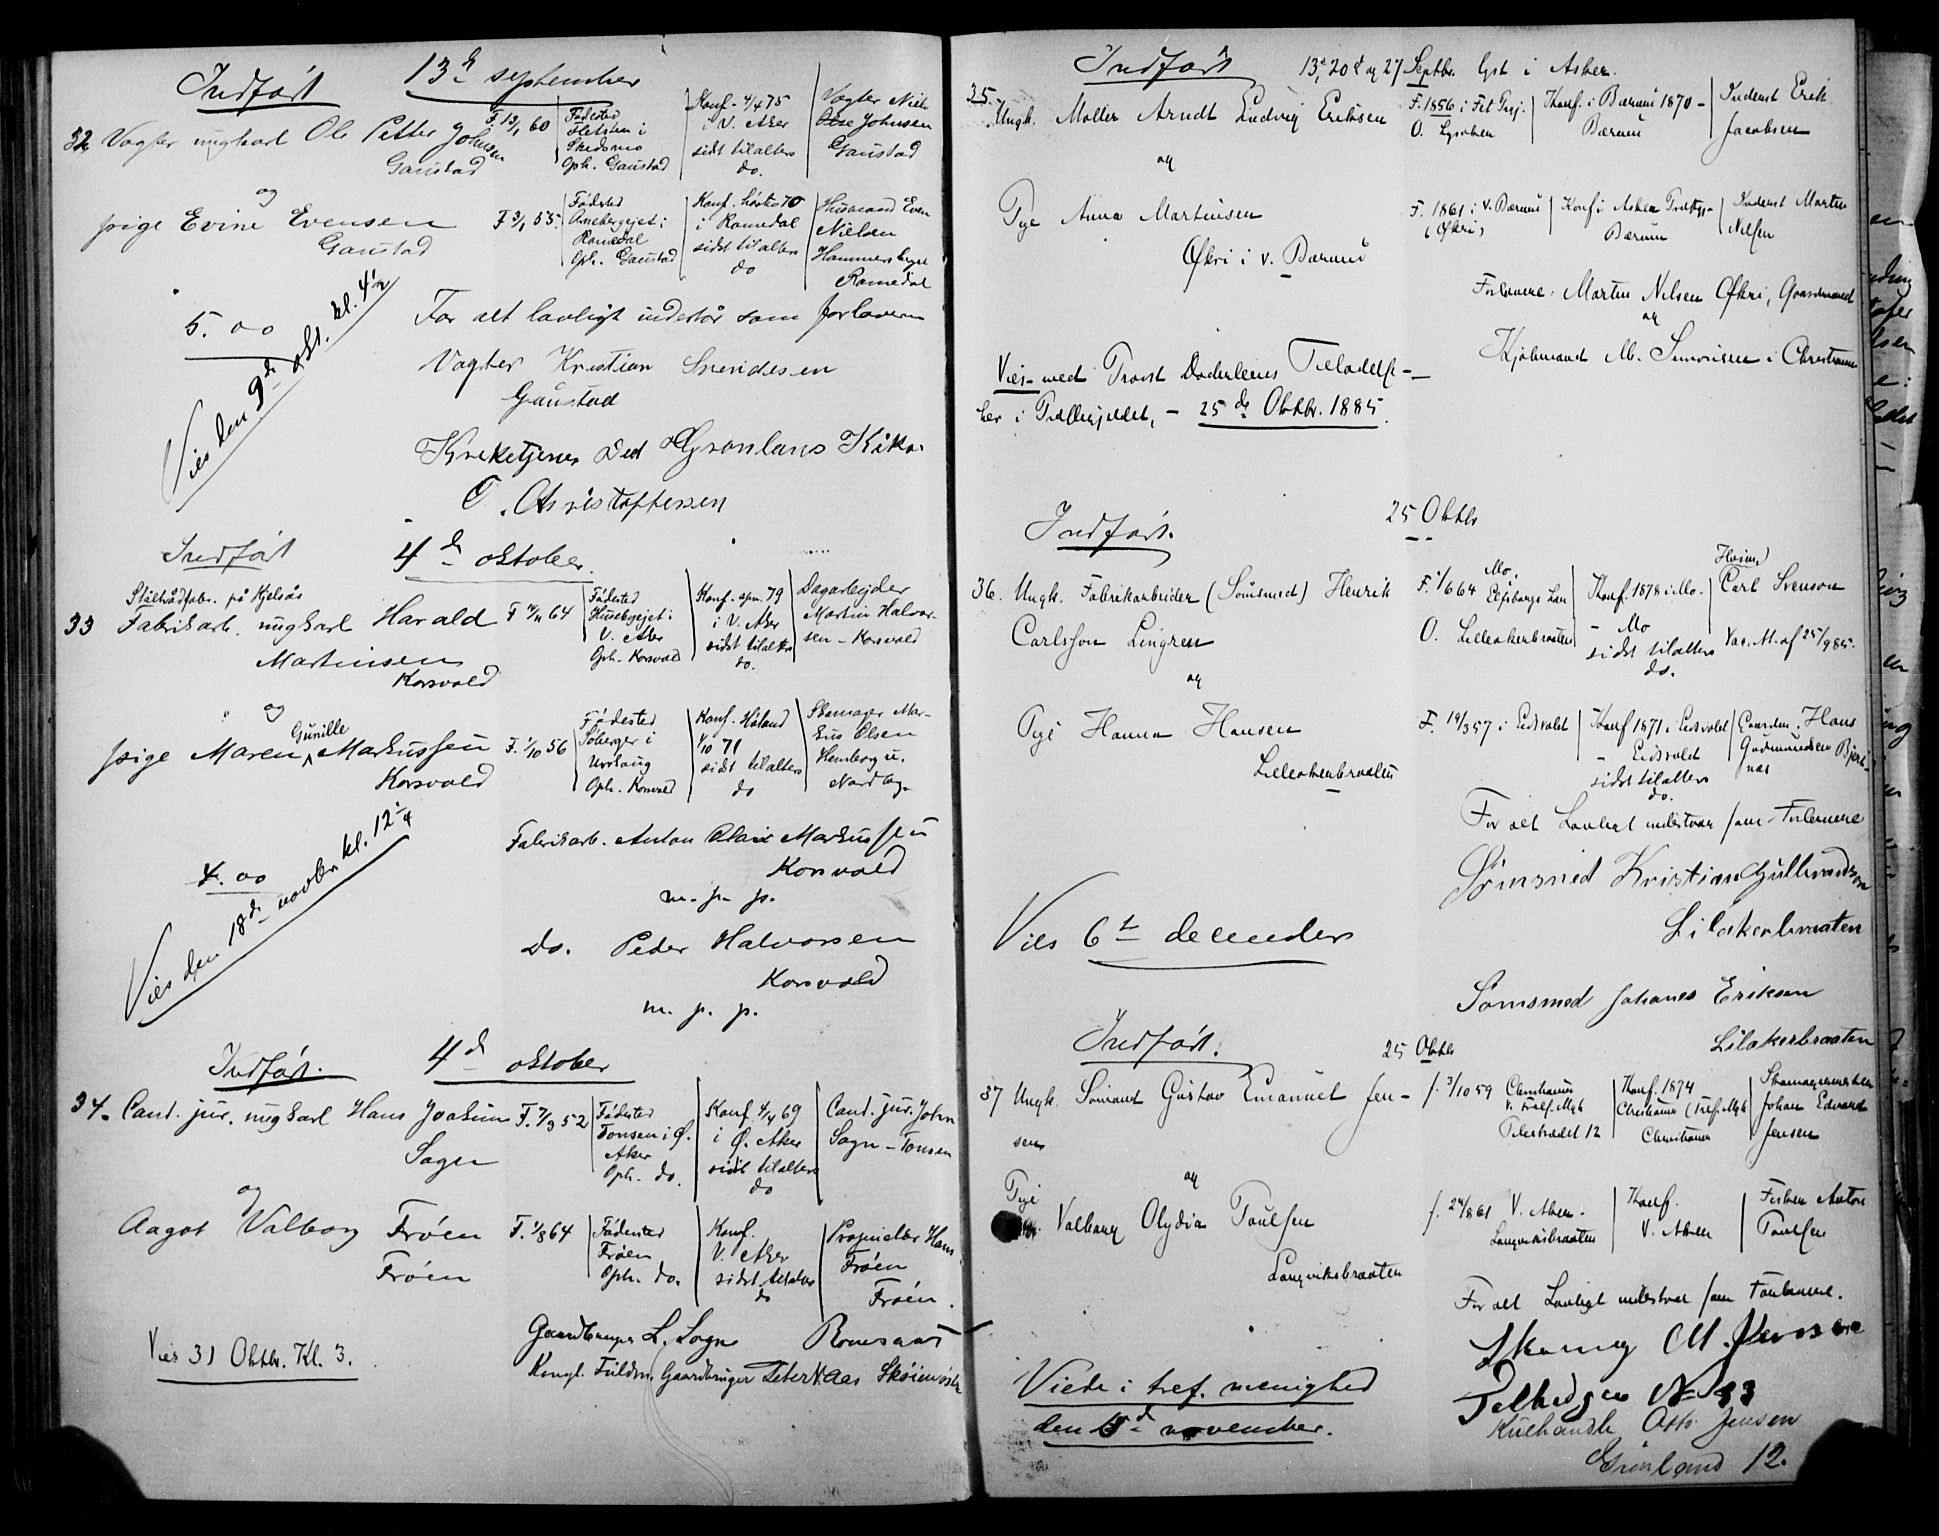 Indført 13de september
32. Vogter ungkarl Ole Petter Johnsen
Gaustad
F. 13/1 60
Fødested
i
Skedsmo
Oph. Gaustad
Konf. 4/4 75
i V. Aker
sidst tilalters
do.
Vogter
Johnsen
Gaustad
og
pige Evine Evensen
Gaustad
F. 3/1 55.
Fødested
i
Romedal
Oph. Gaustad
Konf. høsten 70
i Romedal
sidst tilalters
do
Husmand Even
Nielsen
Romedal
5. 00
Vies den 9de okt. kl. 4 1/2
For alt lovligt indestår som forlovere
Vogter Kristian
Gaustad
Kirketjener ved Grønlans Kirke
C. Christoffersen
Indført 4de oktober.
Ståltrådfabr. på Kjelsås
33 Fabrikarb. ungkarl Harald
Martinsen
Korsvold
F. 4/11 64
Fødested
i
V. Aker
Oph. Korsvold
Konf. apr. 79
i V. Aker
sidst tilalters
do.
Dagarbejder
Martin Halvor-
sen - Korsvold
og
Gunille
pige Maren Markussen
Korsvold
F. 1/10 56
Fødested
Søberger i
Urskaug
Oph. Korsvold
Konf. Høland
1/10 71
sidst tilalters
do
Skomager Mar-
kus Olsen
Nordby
4. 00
Vies den 18de novbr. kl. 12 1/4
Fabrikarb. Anton Markussen
Korsvold
m. p. p.
Do. Peder Halvorsen
Korsvold
m. p. p.
Indført. 4de oktober
34. Cand. jur. ungkarl Hans Joakim
Sogn
F. 7/9 52
Fødested
Tonsen i Ø.
Aker
Oph. do.
Konf. 4/4 69
i Ø. Aker
sidst tilalters
do
Cand. jur. John
Sogn - Tonsen
og
Aagot Valborg Frøen
Frøen
F. 1/8 64
Fødested
Frøen
Oph. do.
Konf.
V. Aker
sidst tilalters
do
Proprietær Hans
Frøen
Frøen.
Vies 31 Oktbr. Kl. 3.
Gaardbruger L. Sogn
Kongl. Fuldm. Gaardbruger Peter N. Aas Skøien østre
Indført 13de, 20de og 27 Septbr. lyst i Asker.
35.
Ungk. Møller Arndt Ludvig Eriksen
F. 1856 i Fet Prgj.
O. Lysaken
Konf. i Bærum 1870 -
Bærum
Inderst Erik
Jacobsen
og
Pige Anna Martinsen
Økri i V. Bærum
F. 1861 i V. Bærum
(Økri)
Konf i Asker
Bærum
Inderst Martin
Nilsen
Forlovere: Martin Nilsen Økri, Gaardmand
og
Kjøbmand M. Simonsen i Christiania
Vies - med Provst Tilladelse -
her i Præstegjeldet, - 25de Oktbr. 1885.
Indført. 25 Oktbr
36. Ungk. Fabrikarbeider (Sømsmed) Henrik
Carlsson Lingren
F. 1/6 64 Mo,
Elfsborgs Län
O. Lilleakerbraaten
Konf. 1878 i Mo -
- Mo
sidst tilalters
do.
Carl Svenson
Vac. A. af 25/9 85.
og
Pige Hanna Hansen
Lilleakerbraaten
F. 19/3 57 i Eidsvold
Konf 1871 i Eidsvold
- Eidsvold
sidst tilalters
do.
Gaardm. Hans
Gudmundsen
For alt Lovligt indestaar som Forlovere
Sømsmed Kristian Gulbrandsen
Lilakerbraaten
Vies 6te december
Sømsmed Johanes Eriksen
Lilakerbraaten
Indført. 25 Oktbr
37 Ungk. Sømand Gustav Emanuel Jen-
sen
f. 3/10 59 Christiania
V. tref. Mgh
12
Konf. 1874
Christiania (tref. Mgh
Christiania
Skomagermester
Johan Edvard
Jensen
og
Pige
Valborg Olydia Poulsen
Langviksbraaten
f. 24/8 61 V. Aker -
Langviksbraaten
Konf.
V. Aker
Fisker Anton
Poulsen
For alt Lovligt indestaar som Forlovere.
Skomag M. Jensen
No 33
Otto Jensen
Grønland 12.
Viede i tref. menighed
den 15de november.